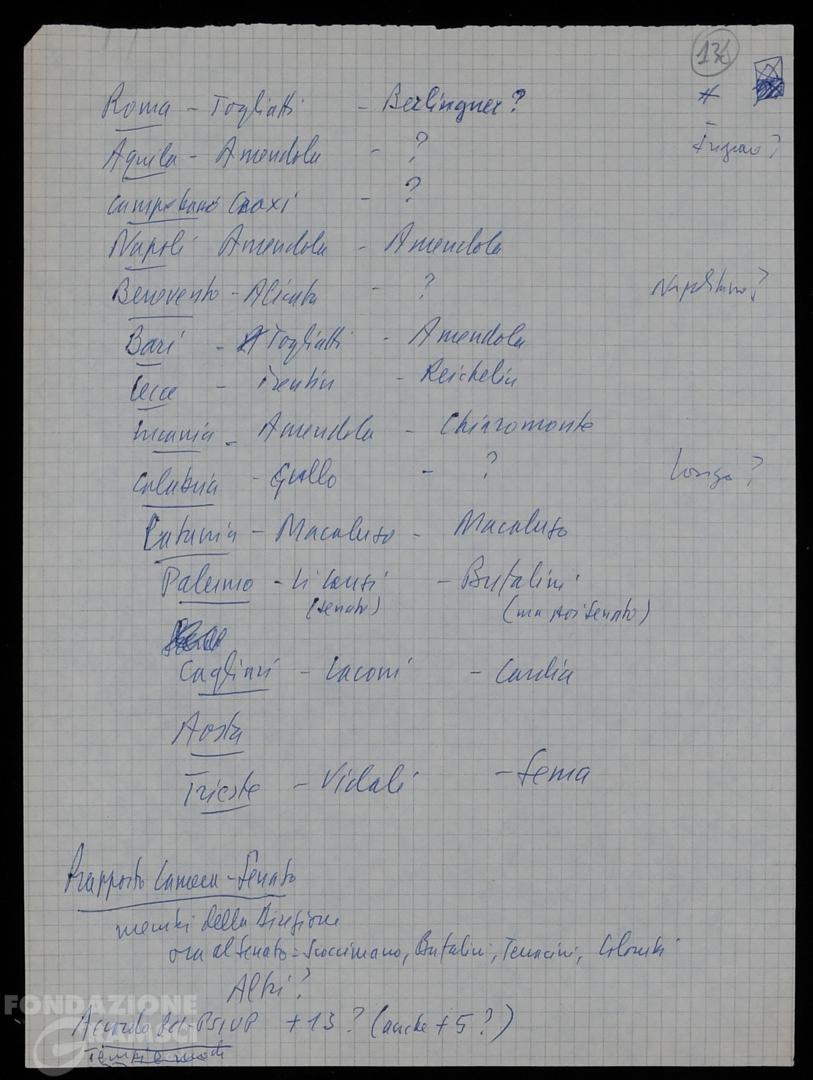 136
Roma - Togliatti - Berlinguer? *
Aquila - Amendola - ? Ingrao?
Campobasso Craxi - ?
Napoli Amendola - Amendola
Benevento - Alicata - ? Napolitano?
Bari - Togliatti - Amendola
Lecce - Trentin - Reichelin
Lucania - Amendola - Chiaromonte
Calabria - Gullo - ? Longo?
Catania - Macaluso - Macaluso
Palermo - Li Causi - Bufalini
(Senato) (ma poi Senato)
Cagliari - Laconi - Cardia
Aosta
Trieste - Vidali - Sema
Rapporto Camera-Senato
membri della Direzione
ora al Senato = Scoccimarro, Bufalini, Terracini, Colombi
Altri?
Accordo Pci-PSIUP +13? (anche +5?)
Tempi e modi
FONDAZIONE
GRAMSCI